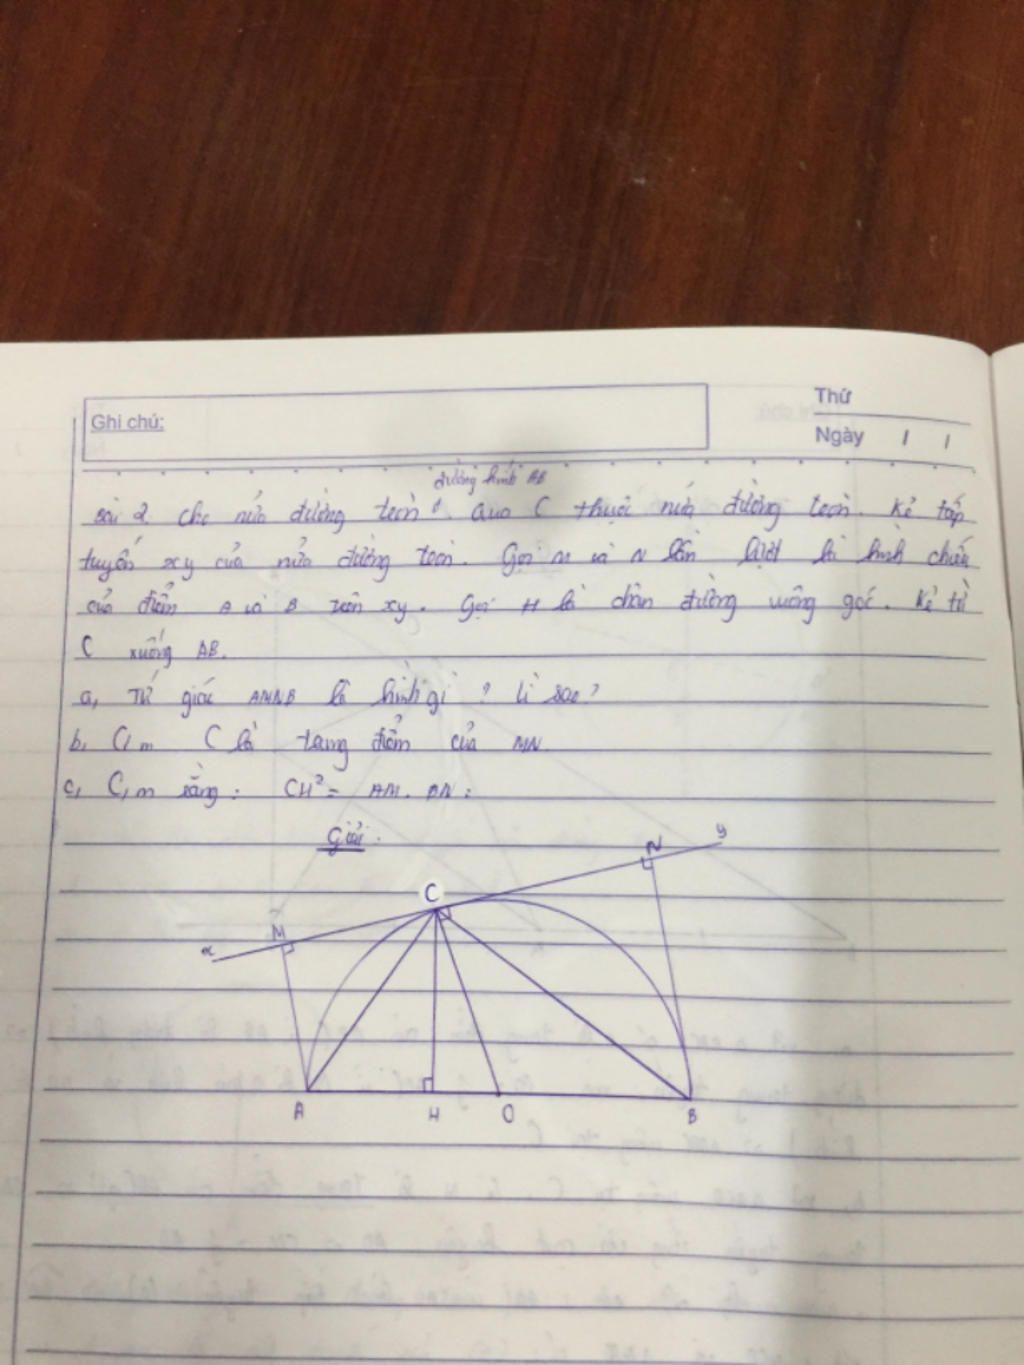 Ghi chú:
Thứ
Ngày / /
đường kính AB
Bài 2. Cho nửa đường tròn. Qua C thuộc nửa đường tròn. Kẻ tiếp
tuyến xy của nửa đường tròn. Gọi M và N lần lượt là hình chiếu
của điểm A và B trên xy. Gọi H là chân đường vuông góc. Kẻ từ
C xuống AB.
a, Tứ giác AMNB là hình gì? Vì sao?
b, C/m C là trung điểm của MN.
c, C/m rằng: CH² = AM. BN.
Giải.
y
N
C
M
x
A H O B